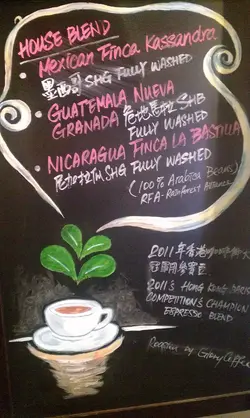 HOUSE BLEND
• Mexican Finca Kassandra
墨西哥 SHG FULLY WASHED
• GUATEMALA NUEVA
GRANADA 危地馬拉 SHB
FULLY WASHED
• NICARAGUA FINCA LA BASTILLA
SHG FULLY WASHED
(100% Arabica Beans)
RFA-Rainforest Alliance
2011年香港
2011'S HONG KONG BARISTA
COMPETITION'S CHAMPION
ESPRESSO BLEND
by Coffee